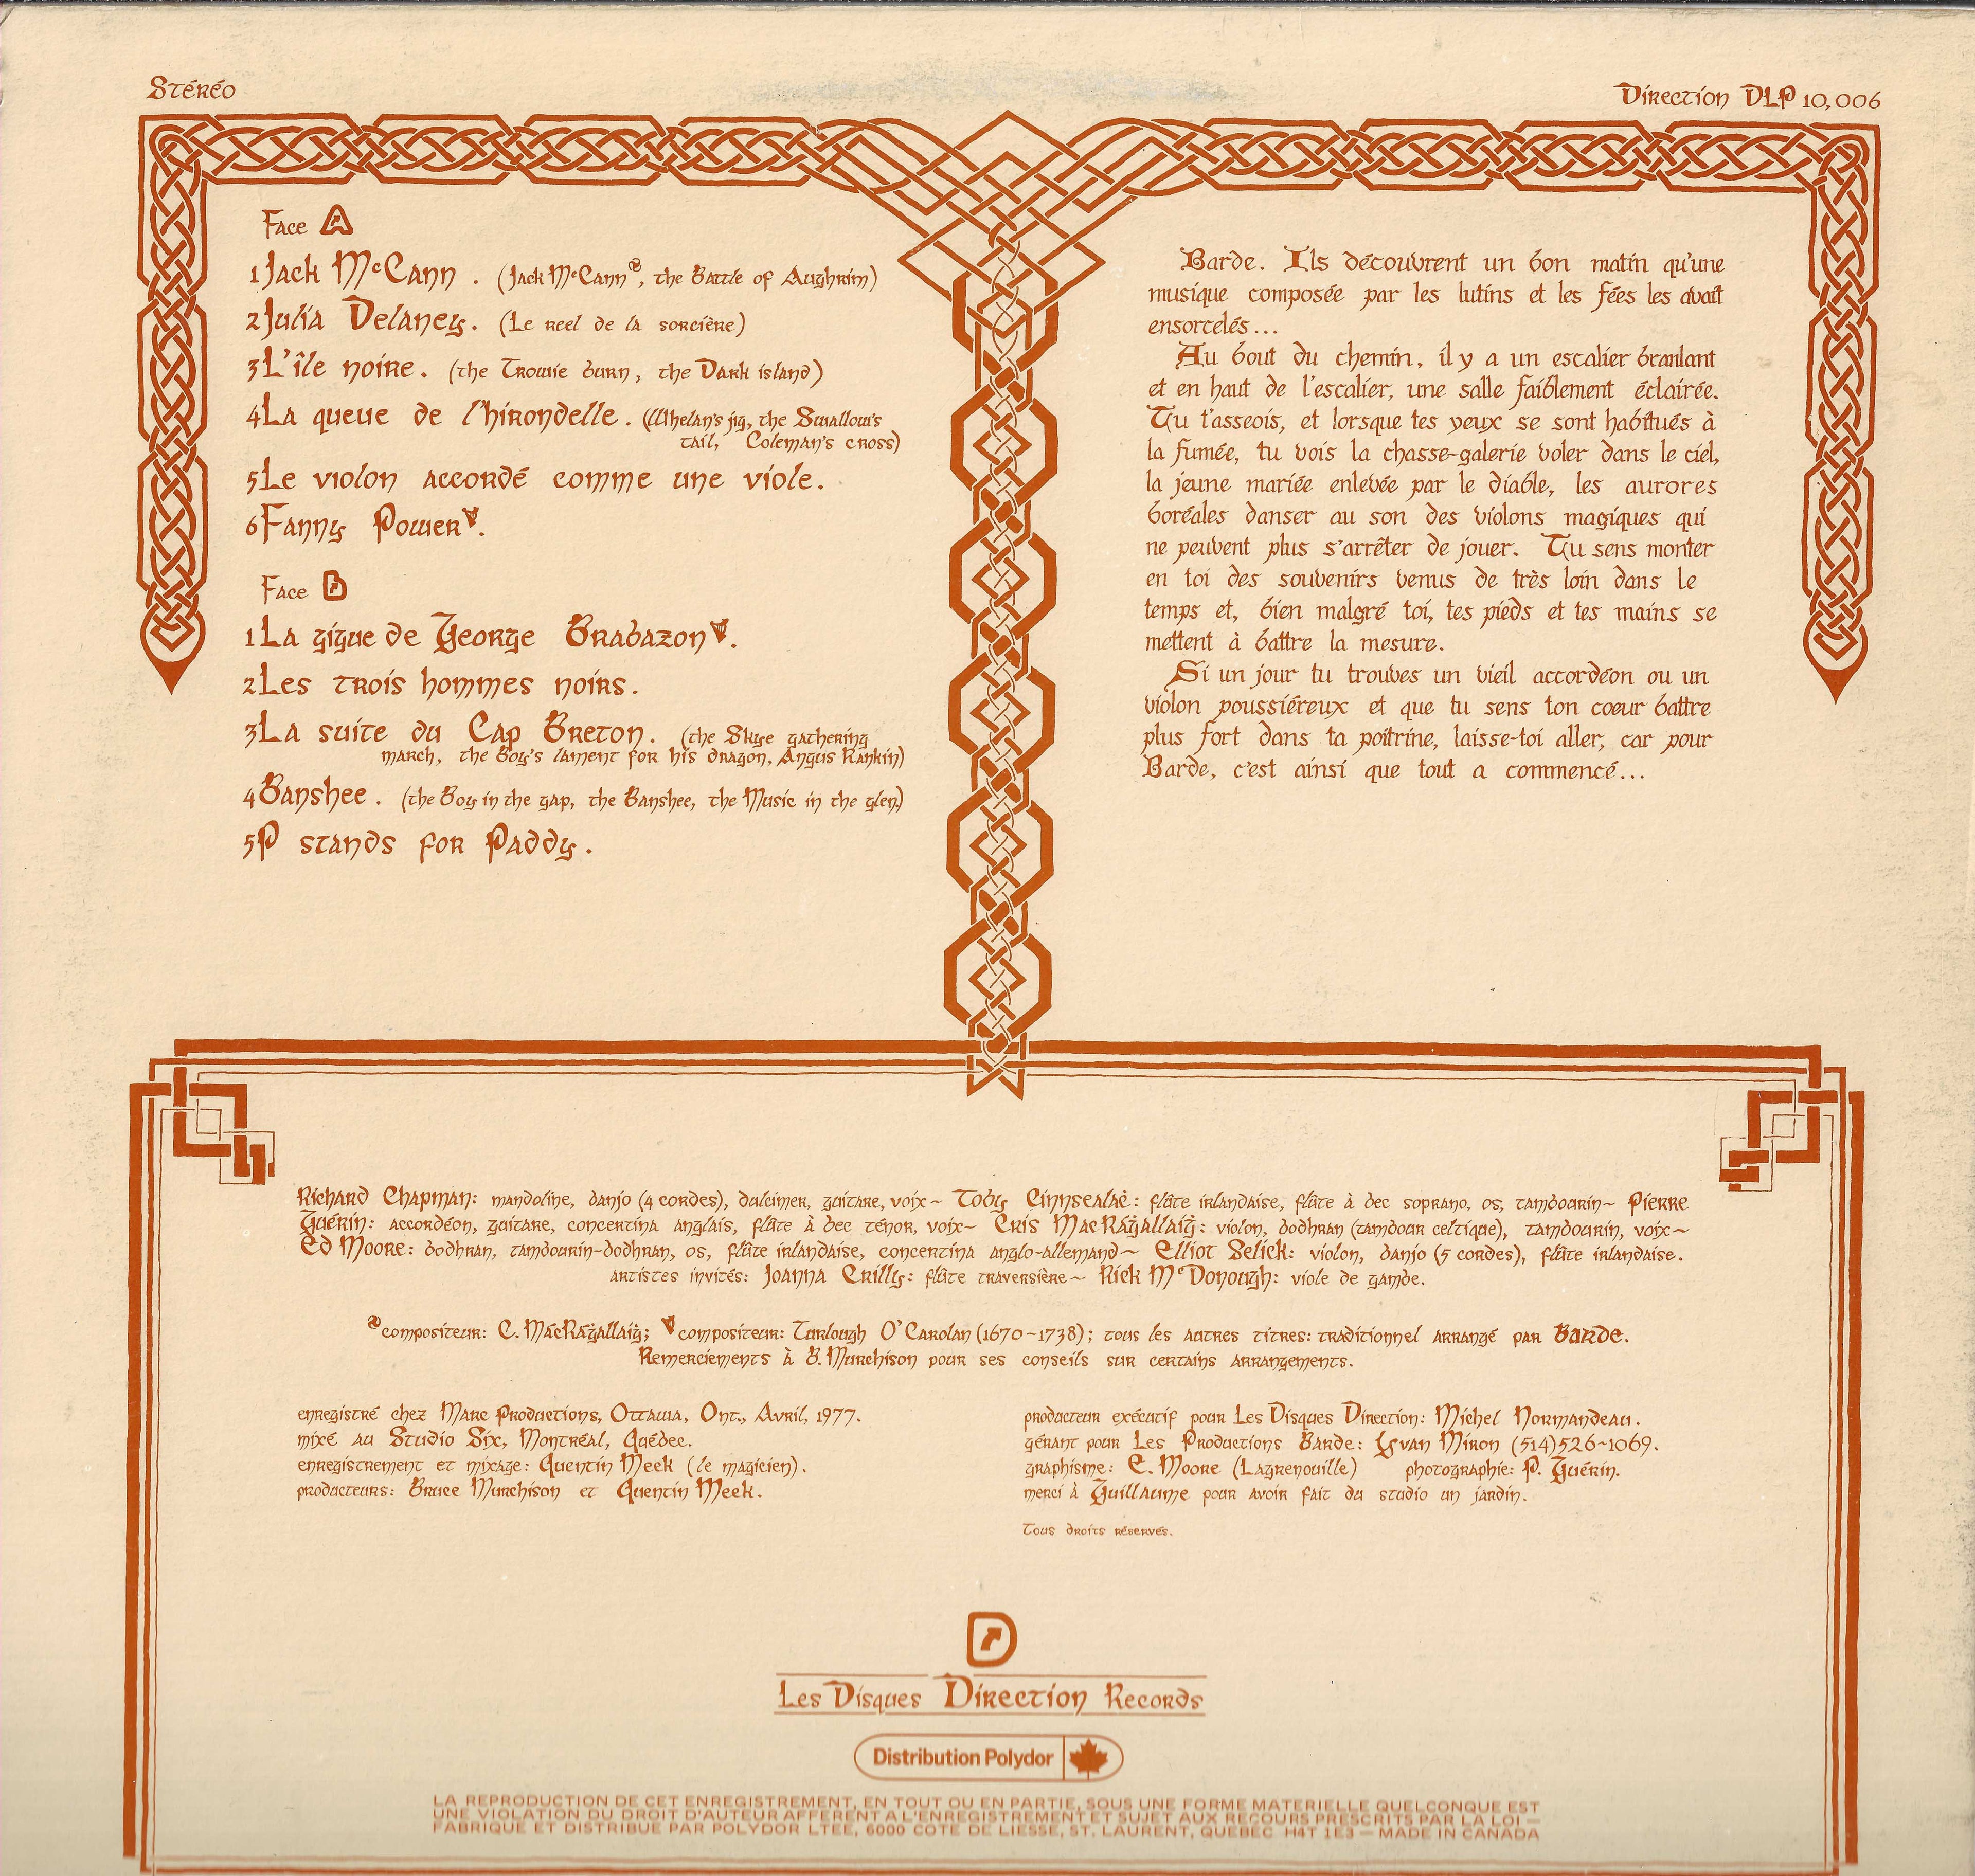 Stéréo
Direction DLP 10,006
Face A
1 Jack McCann. (Jack McCann, the Battle of Aughrim)
2 Julia Delaney. (Le reel de la sorcière)
3 L'île noire. (the Trowie burn, the Dark island)
4 La queue de l'hirondelle. (Whelan's jig, the Swallow's
tail, Coleman's cross)
5 Le violon accordé comme une viole.
6 Fanny Power.
Face B
1 La gigue de George Brabazon.
2 Les trois hommes noirs.
3 La suite du Cap Breton. (the Skye gathering
march, the Boy's lament for his dragon, Angus Rankin)
4 Banshee. (the Boy in the gap, the Banshee, the Music in the glen)
5 P stands for Paddy.
Barde. Ils découvrent un bon matin qu'une
musique composée par les lutins et les fées les avait
ensorcelés...
Au bout du chemin, il y a un escalier branlant
et en haut de l'escalier, une salle faiblement éclairée.
Tu t'asseois, et lorsque tes yeux se sont habitués à
la fumée, tu vois la chasse-galerie voler dans le ciel,
la jeune mariée enlevée par le diable, les aurores
boréales danser au son des violons magiques qui
ne peuvent plus s'arrêter de jouer. Tu sens monter
en toi des souvenirs venus de très loin dans le
temps et, bien malgré toi, tes pieds et tes mains se
mettent à battre la mesure.
Si un jour tu trouves un vieil accordéon ou un
violon poussiéreux et que tu sens ton coeur battre
plus fort dans ta poitrine, laisse-toi aller, car pour
Barde, c'est ainsi que tout a commencé...
Richard Chapman: mandoline, banjo (4 cordes), dulcimer, guitare, voix~ Toby Cinnsealac: flûte irlandaise, flûte à bec soprano, os, tambourin~ Pierre
Guérin: accordéon, guitare, concertina anglais, flûte à bec ténor, voix~ Cris MacRágallaig: violon, bodhran (tambour celtique), tambourin, voix~
Ed Moore: bodhran, tambourin-bodhran, os, flûte irlandaise, concertina anglo-allemand~ Elliot Selick: violon, banjo (5 cordes), flûte irlandaise.
artistes invités: Joanna Crilly: flûte traversière~ Rick McDonough: viole de gambe.
compositeur: C. MacRágallaig; compositeur: Turlough O'Carolan (1670~1738); tous les autres titres: traditionnel arrangé par Barde.
Remerciements à B. Murchison pour ses conseils sur certains arrangements.
enregistré chez Marc Productions, Ottawa, Ont., Avril, 1977.
mixé au Studio Six, Montréal, Québec.
enregistrement et mixage: Quentin Meek (le magicien).
producteurs: Bruce Murchison et Quentin Meek.
producteur exécutif pour Les Disques Direction: Michel Normandeau.
gérant pour Les Productions Barde: Yvan Miron (514)526-1069.
graphisme: E. Moore (Lagrenouille) photographie: P. Guérin.
merci à Guillaume pour avoir fait du studio un jardin.
Tous droits réservés.
Les Disques Direction Records
Distribution Polydor
LA REPRODUCTION DE CET ENREGISTREMENT, EN TOUT OU EN PARTIE, SOUS UNE FORME MATERIELLE QUELCONQUE EST
UNE VIOLATION DU DROIT D'AUTEUR AFFERENT A L'ENREGISTREMENT ET SUJET AUX RECOURS PRESCRITS PAR LA LOI —
FABRIQUE ET DISTRIBUE PAR POLYDOR LTEE, 6000 COTE DE LIESSE, ST. LAURENT, QUEBEC H4T 1E3 — MADE IN CANADA